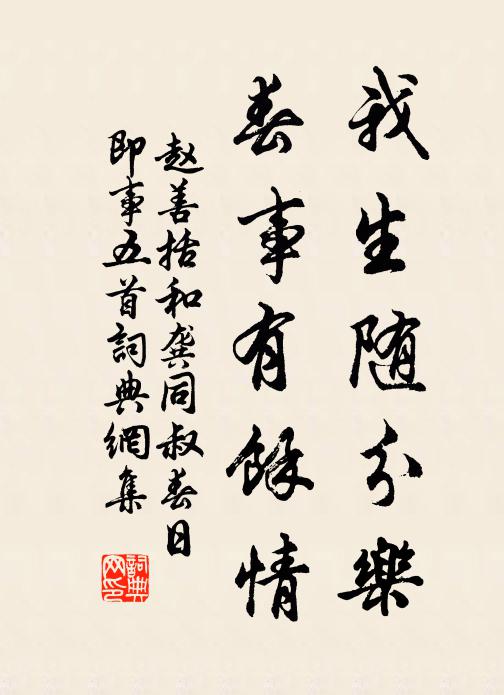 我生随分樂
春事有餘情
赵善括和龚同叔春日
即事五首詞典網集
詞典网印